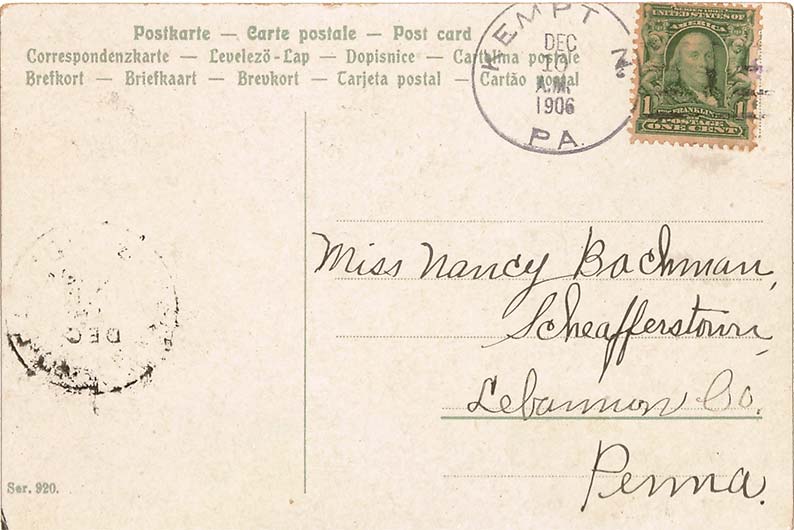 Postkarte — Carte postale — Post card
Correspondenzkarte — Levelezö-Lap — Dopisnice — Cartolina postale
Brefkort — Briefkaart — Brevkort — Tarjeta postal — Cartão postal
KEMPT
DEC
10
A.M.
1906
PA.
UNITED STATES OF
AMERICA
1 FRANKLIN 1
POSTAGE
ONE CENT
Miss Nancy Bachman,
Scheafferstown,
Lebannon Co.
Penna.
DEC
Ser. 920.